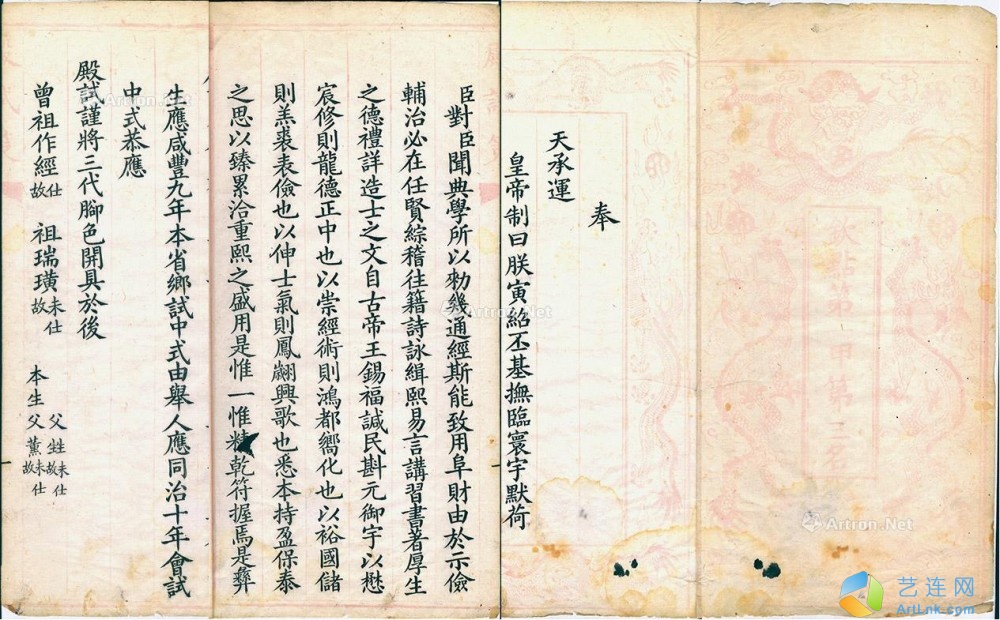 點第 甲第 名
奉
天承運
皇帝制曰朕寅紹丕基撫臨寰宇默荷
臣對臣聞典學所以勑幾通經斯能致用阜財由於示儉
輔治必在任賢綜稽往籍詩詠緝熙易言講習書著厚生
之德禮詳造士之文自古帝王錫福諴民斟元御宇以懋
宸修則龍德正中也以崇經術則鴻都嚮化也以裕國儲
則羔裘表儉也以伸士氣則鳳翽興歌也悉本持盈保泰
之思以臻累洽重熙之盛用是惟一惟精乾符握焉是彝
生應咸豐九年本省鄉試中式由舉人應同治十年會試
中式恭應
殿試謹將三代腳色開具於後
曾祖作經仕故 祖瑞璜未仕故 本生父薰未仕故 父甡未仕故
Artron.Net
Artron.Net
Artron.Net
艺连网
ArtLnk.com